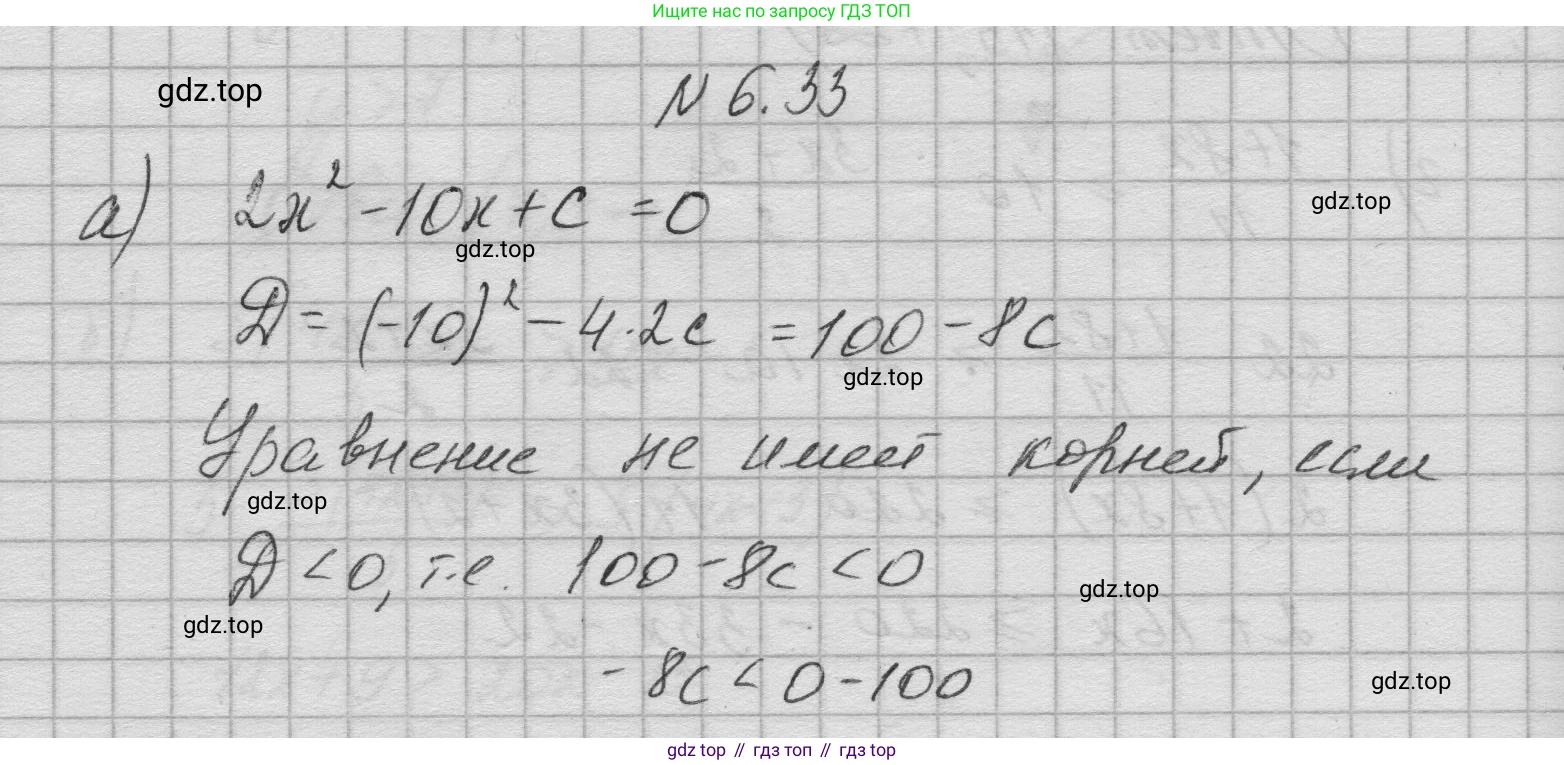 Ищите нас по запросу ГДЗ ТОП
gdz.top
N 6.33
а) 2x² - 10x + c = 0
gdz.top
gdz.top
D = (-10)² - 4·2c = 100 - 8c
gdz.top
Уравнение не имеет корней, если
gdz.top
D < 0, т.е. 100 - 8c < 0
gdz.top
gdz.top
- 8c < 0 - 100
gdz.top
gdz top // гдз топ // гдз top